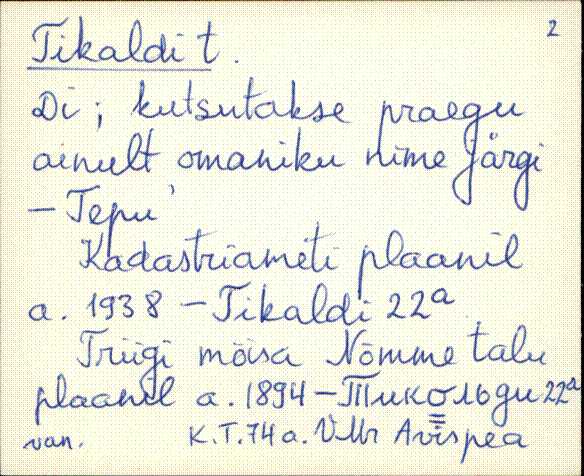 Tikaldi t. 2
Di; kutsutakse praegu
ainult omaniku nime järgi
– Tepu'
Kadastriameti plaanil
a. 1938 – Tikaldi 22a
Triigi mõisa Nõmme talu
plaanil a. 1894 – Тикольди 22a
van. K.T. 74 a. VMr Avispea